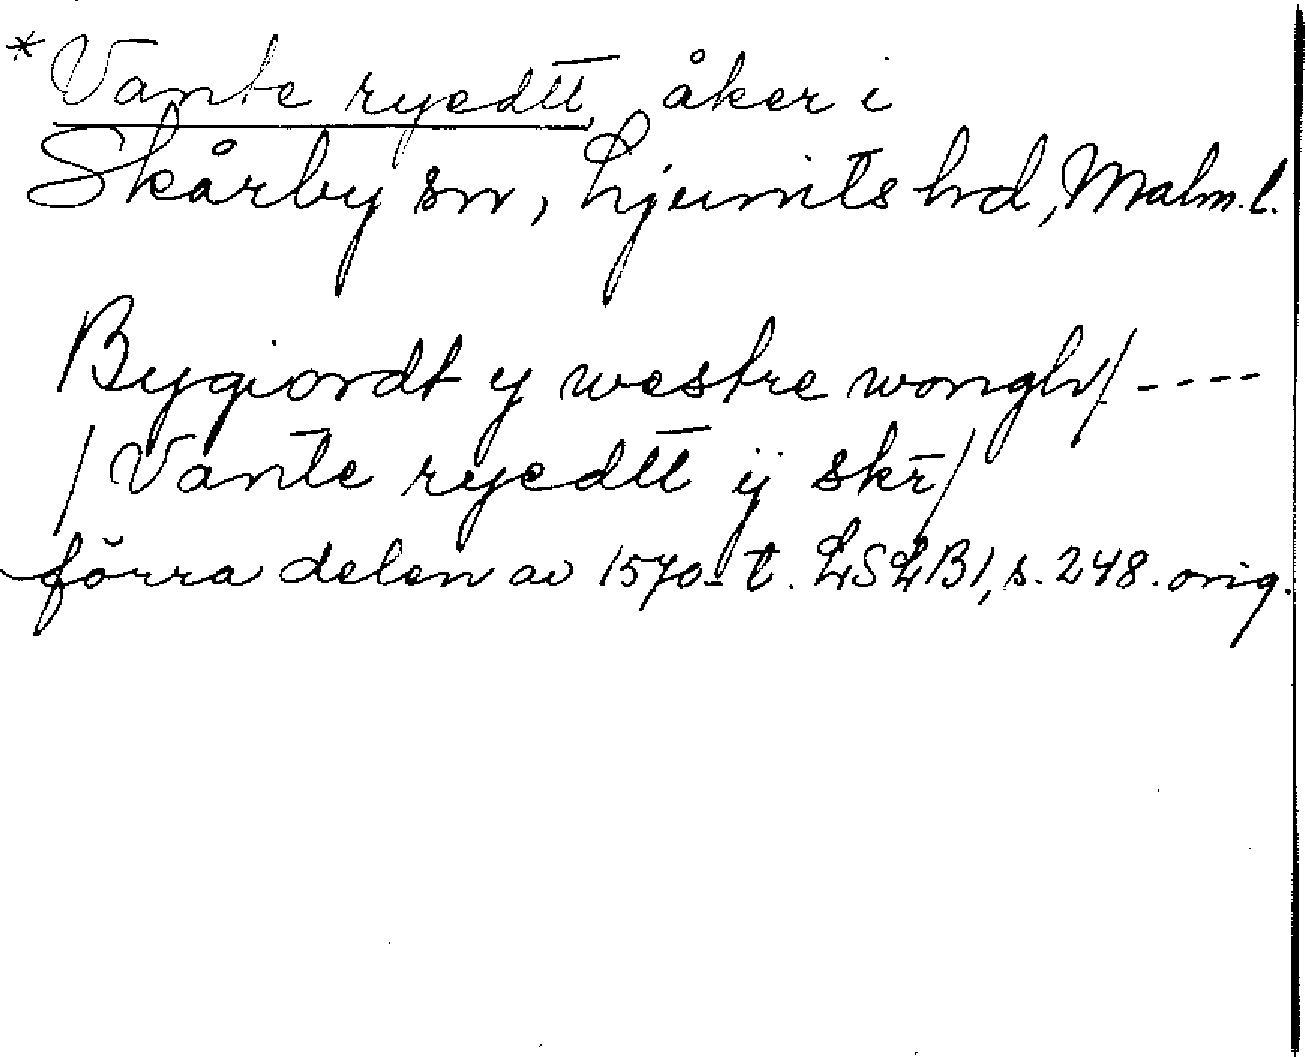 *Vante ryedtt, åker i
Skårby sn, Ljunits hd, Malm.l.
Bygiordt y westre wongh/----
/Vante ryedtt ij skr/
förra delen av 1570-t. LSLB1, s. 248. orig.